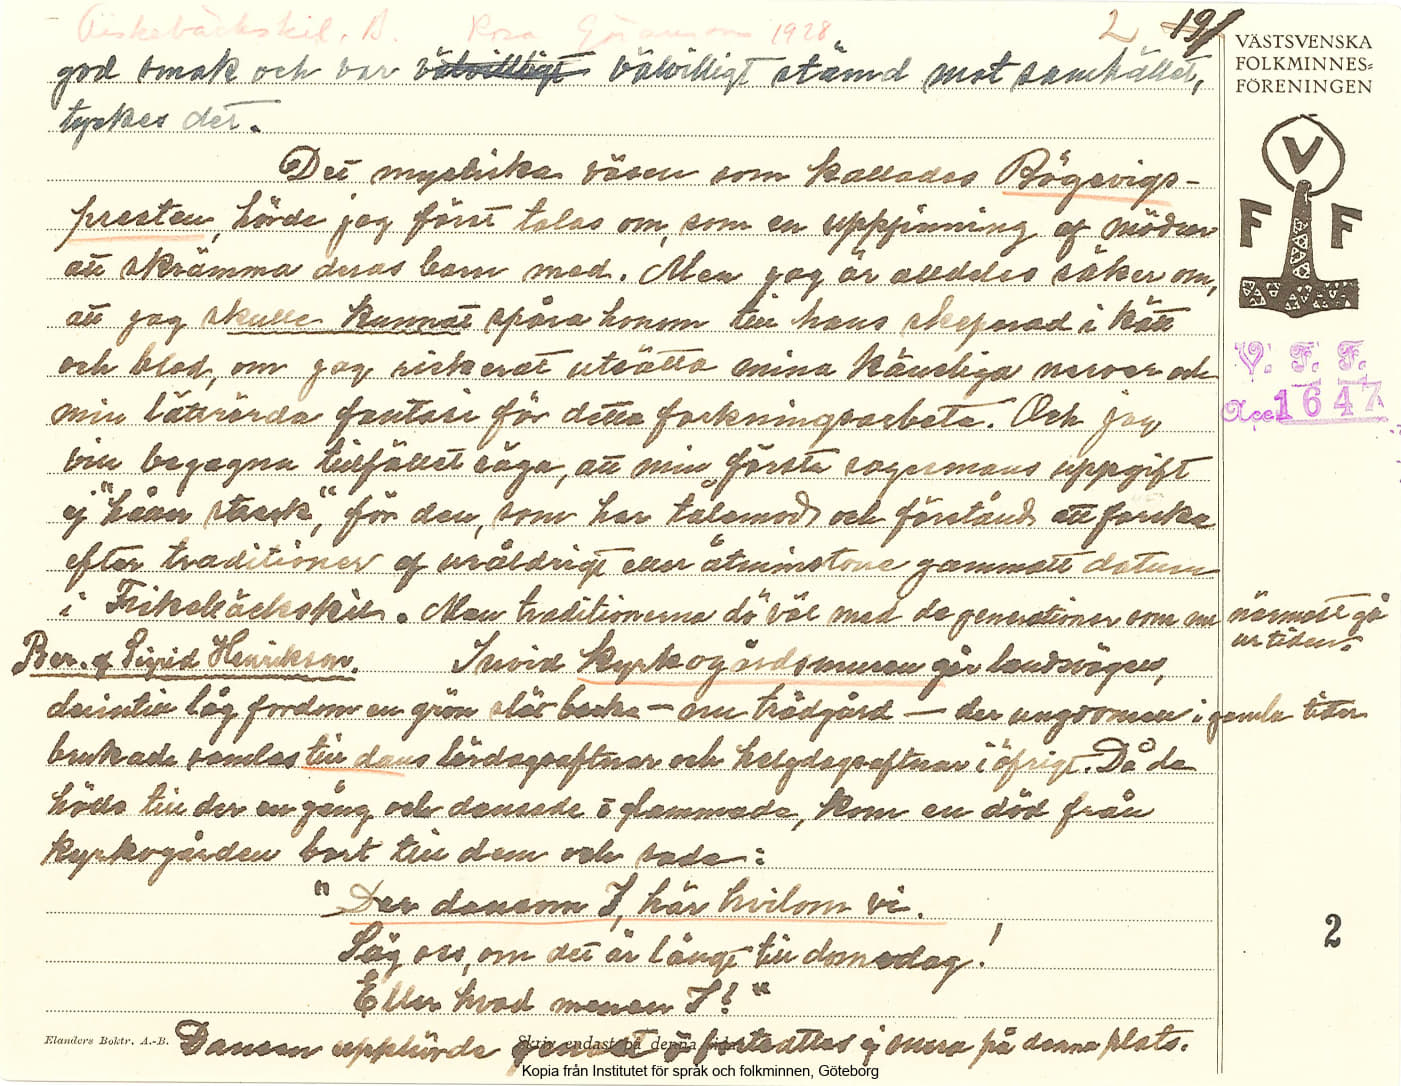 Fiskebäckskil. B. Rosa Göransson 1928 2 191
god smak och var välvilligt välvilligt stämd mot samhället,
tyckes det.
Det mystiska väsen som kallades Bögevigs-
presten, hörde jag först talas om, som en uppfinning af mödrar
att skrämma deras barn med. Men jag är alldeles säker om,
att jag skulle kunnat spåra honom till hans skepnad i kött
och blod, om jag riskerat utsätta mina känsliga nerver och
min lättrörda fantasi för detta forskningsarbete. Och jag
vill begagna tillfället säga, att min första sagesmans uppgift
ej "håller streck", för den, som har tålamod och förstånd att forska
efter traditioner af uråldrigt eller åtminstone gammalt datum
i Fiskebäckskil. Men traditionerna dö väl med de generationer som nu närmast gå
ur tiden.
Ber. af Sigrid Henrikson. Invid kyrkogårdsmuren går landsvägen,
därintill låg fordom en grön slät backe – nu trädgård – der ungdomen i gamla tider
brukade samlas till dans lördagsaftnar och helgdagsaftnar i öfrigt. Då de
höllo till der en gång och dansade o glammade, kom en död från
kyrkogården bort till dem och sade:
"Der dansom I, här hvilom vi.
Säg oss, om det är långt till domedag!
Eller hvad menen I!"
Dansen upphörde genast o fortsattes ej mera på denna plats.
VÄSTSVENSKA
FOLKMINNES=
FÖRENINGEN
V
F F
V. F. F.
Acc. 1647
2
Elanders Boktr. A.-B. Skriv endast på denna sida!
Kopia från Institutet för språk och folkminnen, Göteborg